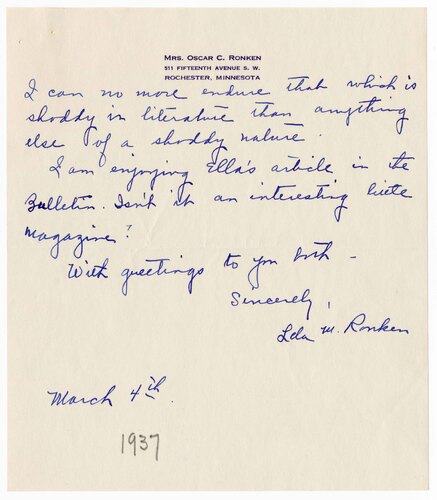 MRS. OSCAR C. RONKEN
511 FIFTEENTH AVENUE S. W.
ROCHESTER, MINNESOTA
I can no more endure that which is
shoddy in literature than anything
else of a shoddy nature.
I am enjoying Ella's article in the
Bulletin. Isn't it an interesting little
magazine?
With greetings to you both -
Sincerely,
Lda M. Ronken
March 4th.
1937